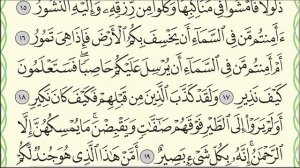 ذَلُولًا فَٱمْشُوا۟ فِى مَنَاكِبِهَا وَكُلُوا۟ مِن رِّزْقِهِۦ وَإِلَيْهِ ٱلنُّشُورُ ١٥
ءَأَمِنتُم مَّن فِى ٱلسَّمَآءِ أَن يَخْسِفَ بِكُمُ ٱلْأَرْضَ فَإِذَا هِىَ تَمُورُ ١٦
أَمْ أَمِنتُم مَّن فِى ٱلسَّمَآءِ أَن يُرْسِلَ عَلَيْكُمْ حَاصِبًا فَسَتَعْلَمُونَ
كَيْفَ نَذِيرِ ١٧ وَلَقَدْ كَذَّبَ ٱلَّذِينَ مِن قَبْلِهِمْ فَكَيْفَ كَانَ نَكِيرِ ١٨
أَوَلَمْ يَرَوْا۟ إِلَى ٱلطَّيْرِ فَوْقَهُمْ صَٰٓفَّٰتٍ وَيَقْبِضْنَ مَا يُمْسِكُهُنَّ إِلَّا
ٱلرَّحْمَٰنُ إِنَّهُۥ بِكُلِّ شَىْءٍۭ بَصِيرٌ ١٩ أَمَّنْ هَٰذَا ٱلَّذِى هُوَ جُندٌ لَّكُمْ